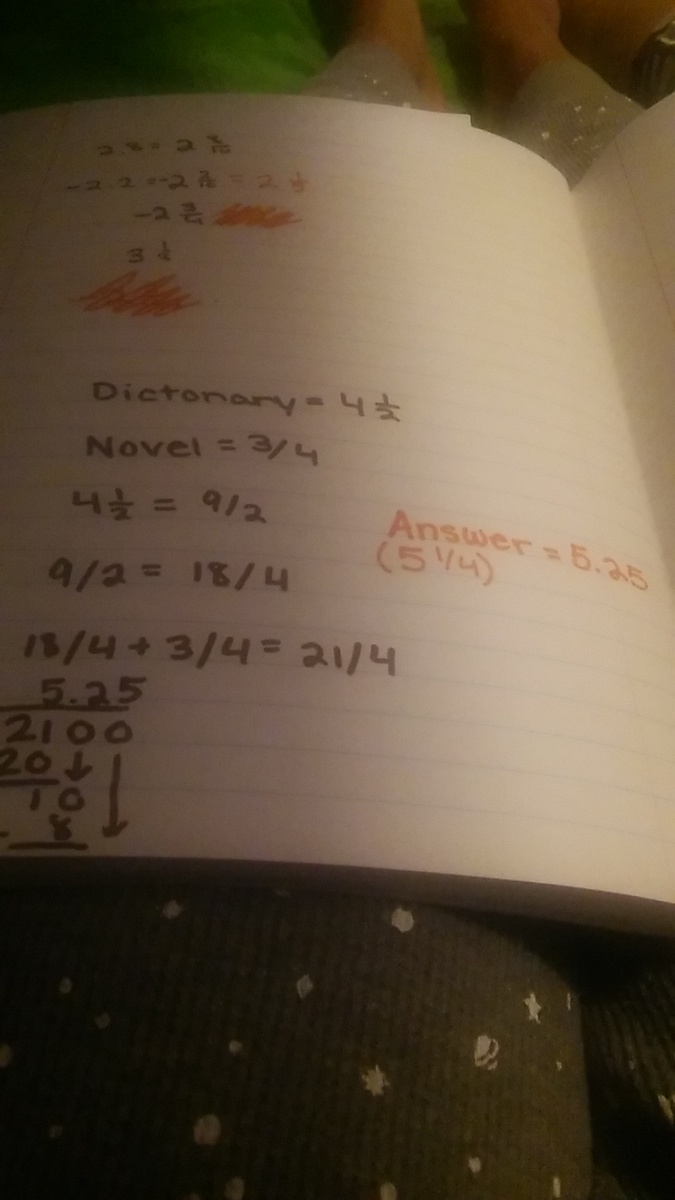 2.8 = 2 8/10
-2.2 = -2 2/10 = 2 1/5
-2 3/4
3 1/2
Dictonary = 4 1/2
Novel = 3/4
4 1/2 = 9/2
9/2 = 18/4
Answer = 5.25
(5 1/4)
18/4 + 3/4 = 21/4
5.25
2100
20
10
- 8